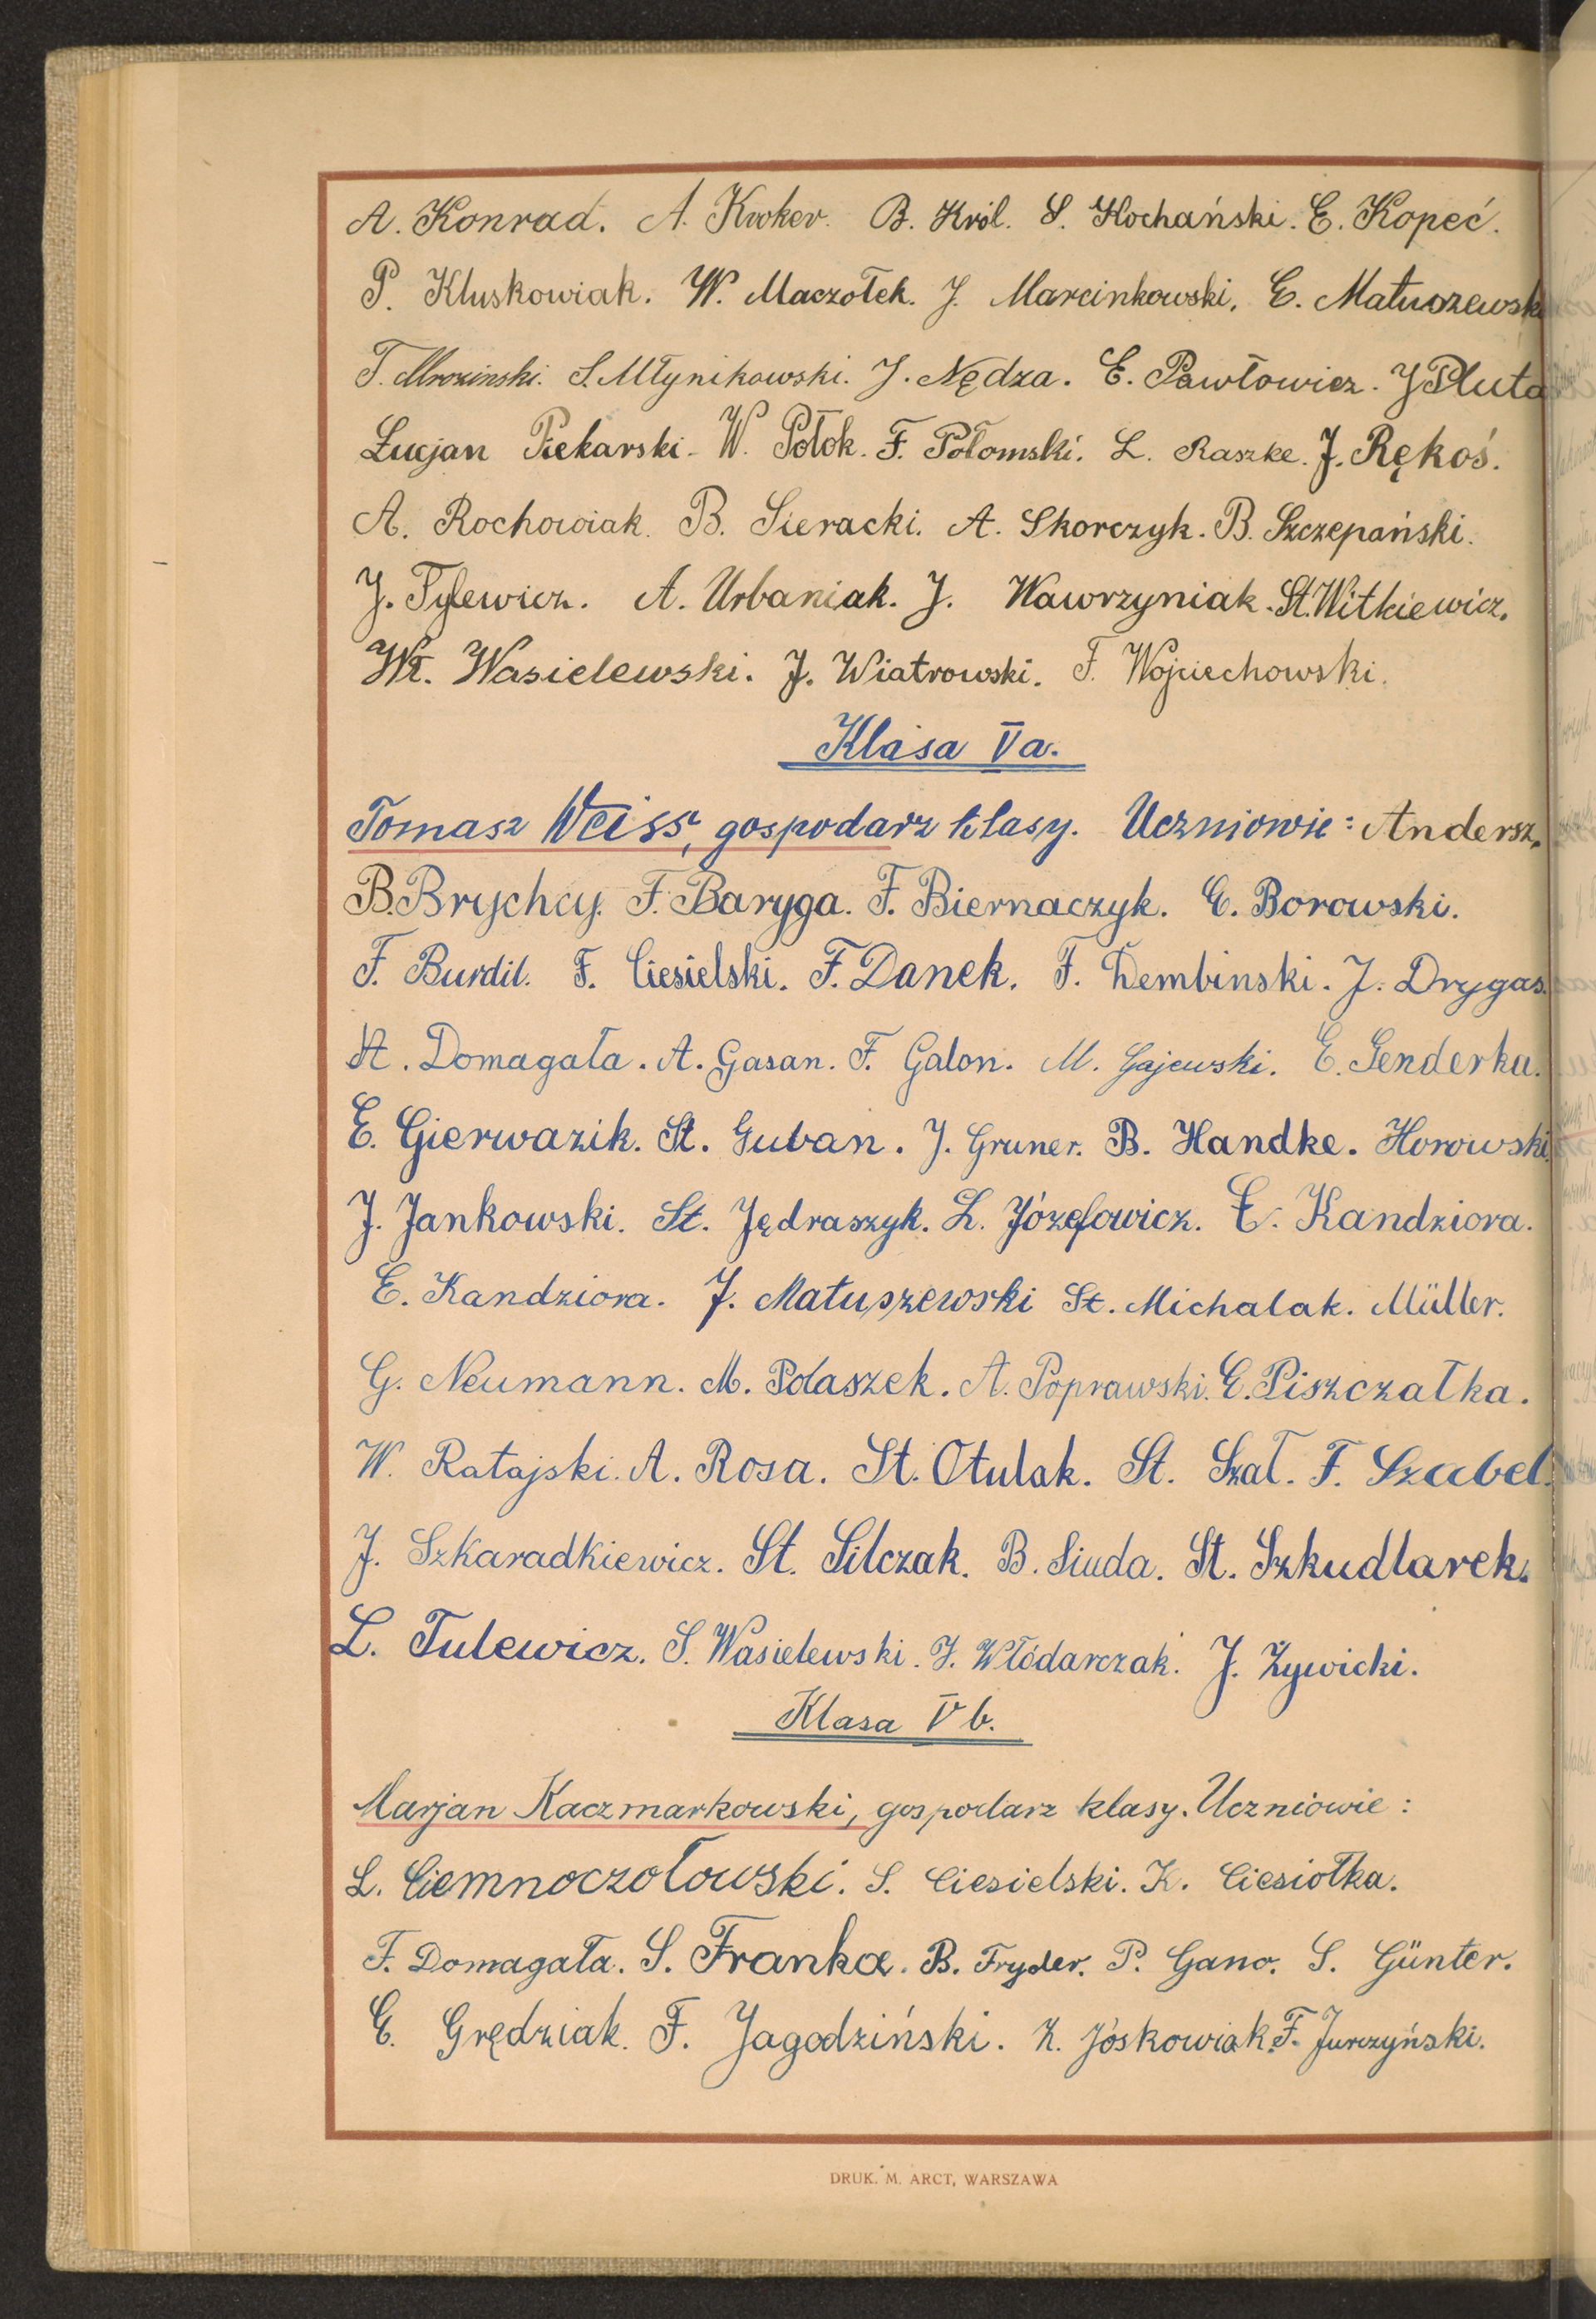 A. Konrad. A. Kroker. B. Król. S. Kochański. E. Kopeć.
P. Kluskowiak. W. Maczołek. J. Marcinkowski. E. Matuszewsk
T. Mrozinski. S. Młynikowski. J. Nędza. E. Pawłowicz. J Pluta
Łucjan Piekarski. W. Połok. F. Połomski. L. Raszke. J. Rękoś.
A. Rochowiak. B. Sieracki. A. Skorczyk. B. Szczepański.
J. Tylewicz. A. Urbaniak. J. Wawrzyniak. St. Witkiewicz.
Wł. Wasielewski. J. Wiatrowski. F. Wojciechowski.
Klasa Va.
Tomasz Weiss, gospodarz klasy. Uczniowie: Andersz.
B. Brychcy. F. Baryga. F. Biernaczyk. E. Borowski.
F. Burdil. F. Ciesielski. F. Danek. F. Dembinski. J. Drygas.
A. Domagała. A. Gasan. F. Galon. M. Gajewski. E. Genderka.
E. Gierwazik. St. Guban. J. Gruner. B. Handke. Horowski.
J. Jankowski. St. Jędraszyk. L. Józefowicz. E. Kandziora.
E. Kandziora. J. Matuszewski St. Michalak. Müller.
G. Neumann. M. Polaszek. A. Poprawski. E. Piszczałka.
W. Ratajski. A. Rosa. St. Otulak. St. Szał. F. Szabel.
J. Szkaradkiewicz. St. Silczak. B. Siuda. St. Szkudlarek.
L. Tulewicz. S. Wasielewski. J. Włódarczak. J. Żywicki.
Klasa V b.
Marjan Kaczmarkowski, gospodarz klasy. Uczniowie:
L. Ciemnoczołowski. S. Ciesielski. K. Ciesiołka.
F. Domagała. S. Franka. B. Fryder. P. Gano. S. Günter.
E. Grędziak. F. Jagodziński. K. Jóskowiak. F. Jurczyński.
DRUK. M. ARCT, WARSZAWA